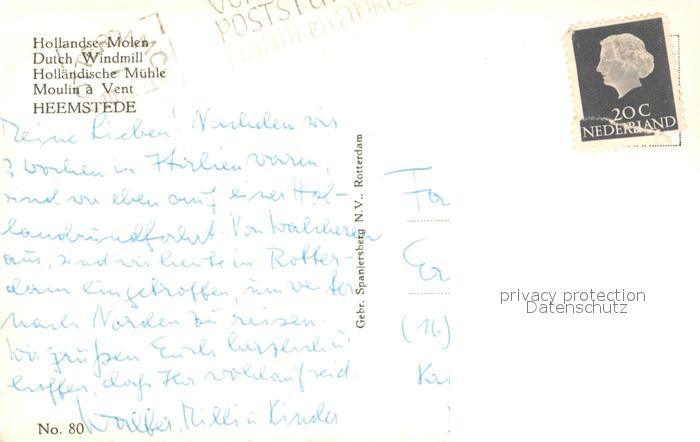 POSTST
Hollandse Molen
Dutch Windmill
Holländische Mühle
Moulin à Vent
HEEMSTEDE
20 C
NEDERLAND
Meine Lieben! Nachdem wir
3 Wochen in Italien waren,
sind wir eben auf einer Hol-
landrundfahrt. Von Walcheren
aus, sind wir heute in Rotter-
dam eingetroffen, um weiter
nach Norden zu reisen.
Wir grüßen Euch herzlich u.
hoffen, daß Ihr wohlauf seid.
Walter, Milli u. Kinder
Gebr. Spanjersberg N.V., Rotterdam
Fa
Er
(16)
privacy protection
Datenschutz
No. 80